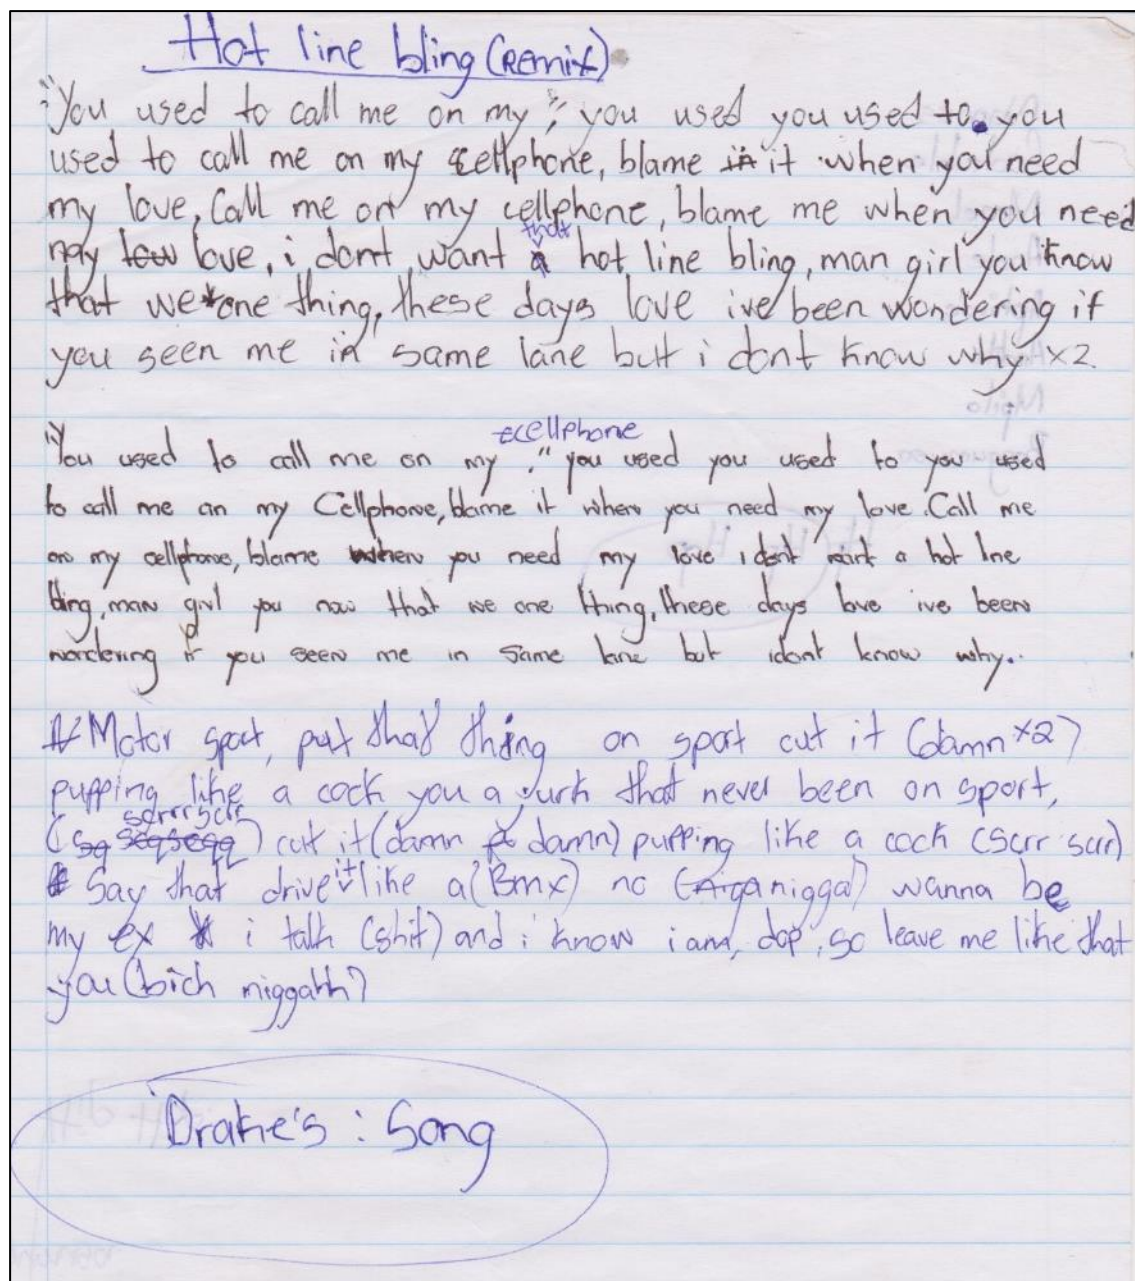 Hot line bling (Remix)
"You used to call me on my", you used you used to. you
used to call me on my cellphone, blame it when you need
my love, Call me on my cellphone, blame me when you need
my love, i dont want that hot line bling, man girl you know
that we one thing, these days love ive been wondering if
you seen me in same lane but i dont know why x2.
cellphone
"You used to call me on my ," you used you used to you used
to call me on my Cellphone, blame it when you need my love. Call me
on my cellphone, blame when you need my love i dont want a hot line
bling, man girl you now that we one thing, these days love ive been
wondering if you seen me in same lane but idont know why..
Motor sport, put that thing on sport cut it (damn x2)
pupping like a cock you a that never been on sport,
scrrr scrr
( ) cut it (damn damn) pupping like a cock (scrr scrr)
Say that drive it like a (Bmx) no (nigga) wanna be
my ex i talk (shit) and i know i am, dop, so leave me like that
you (bich niggahh)
Drake's : Song